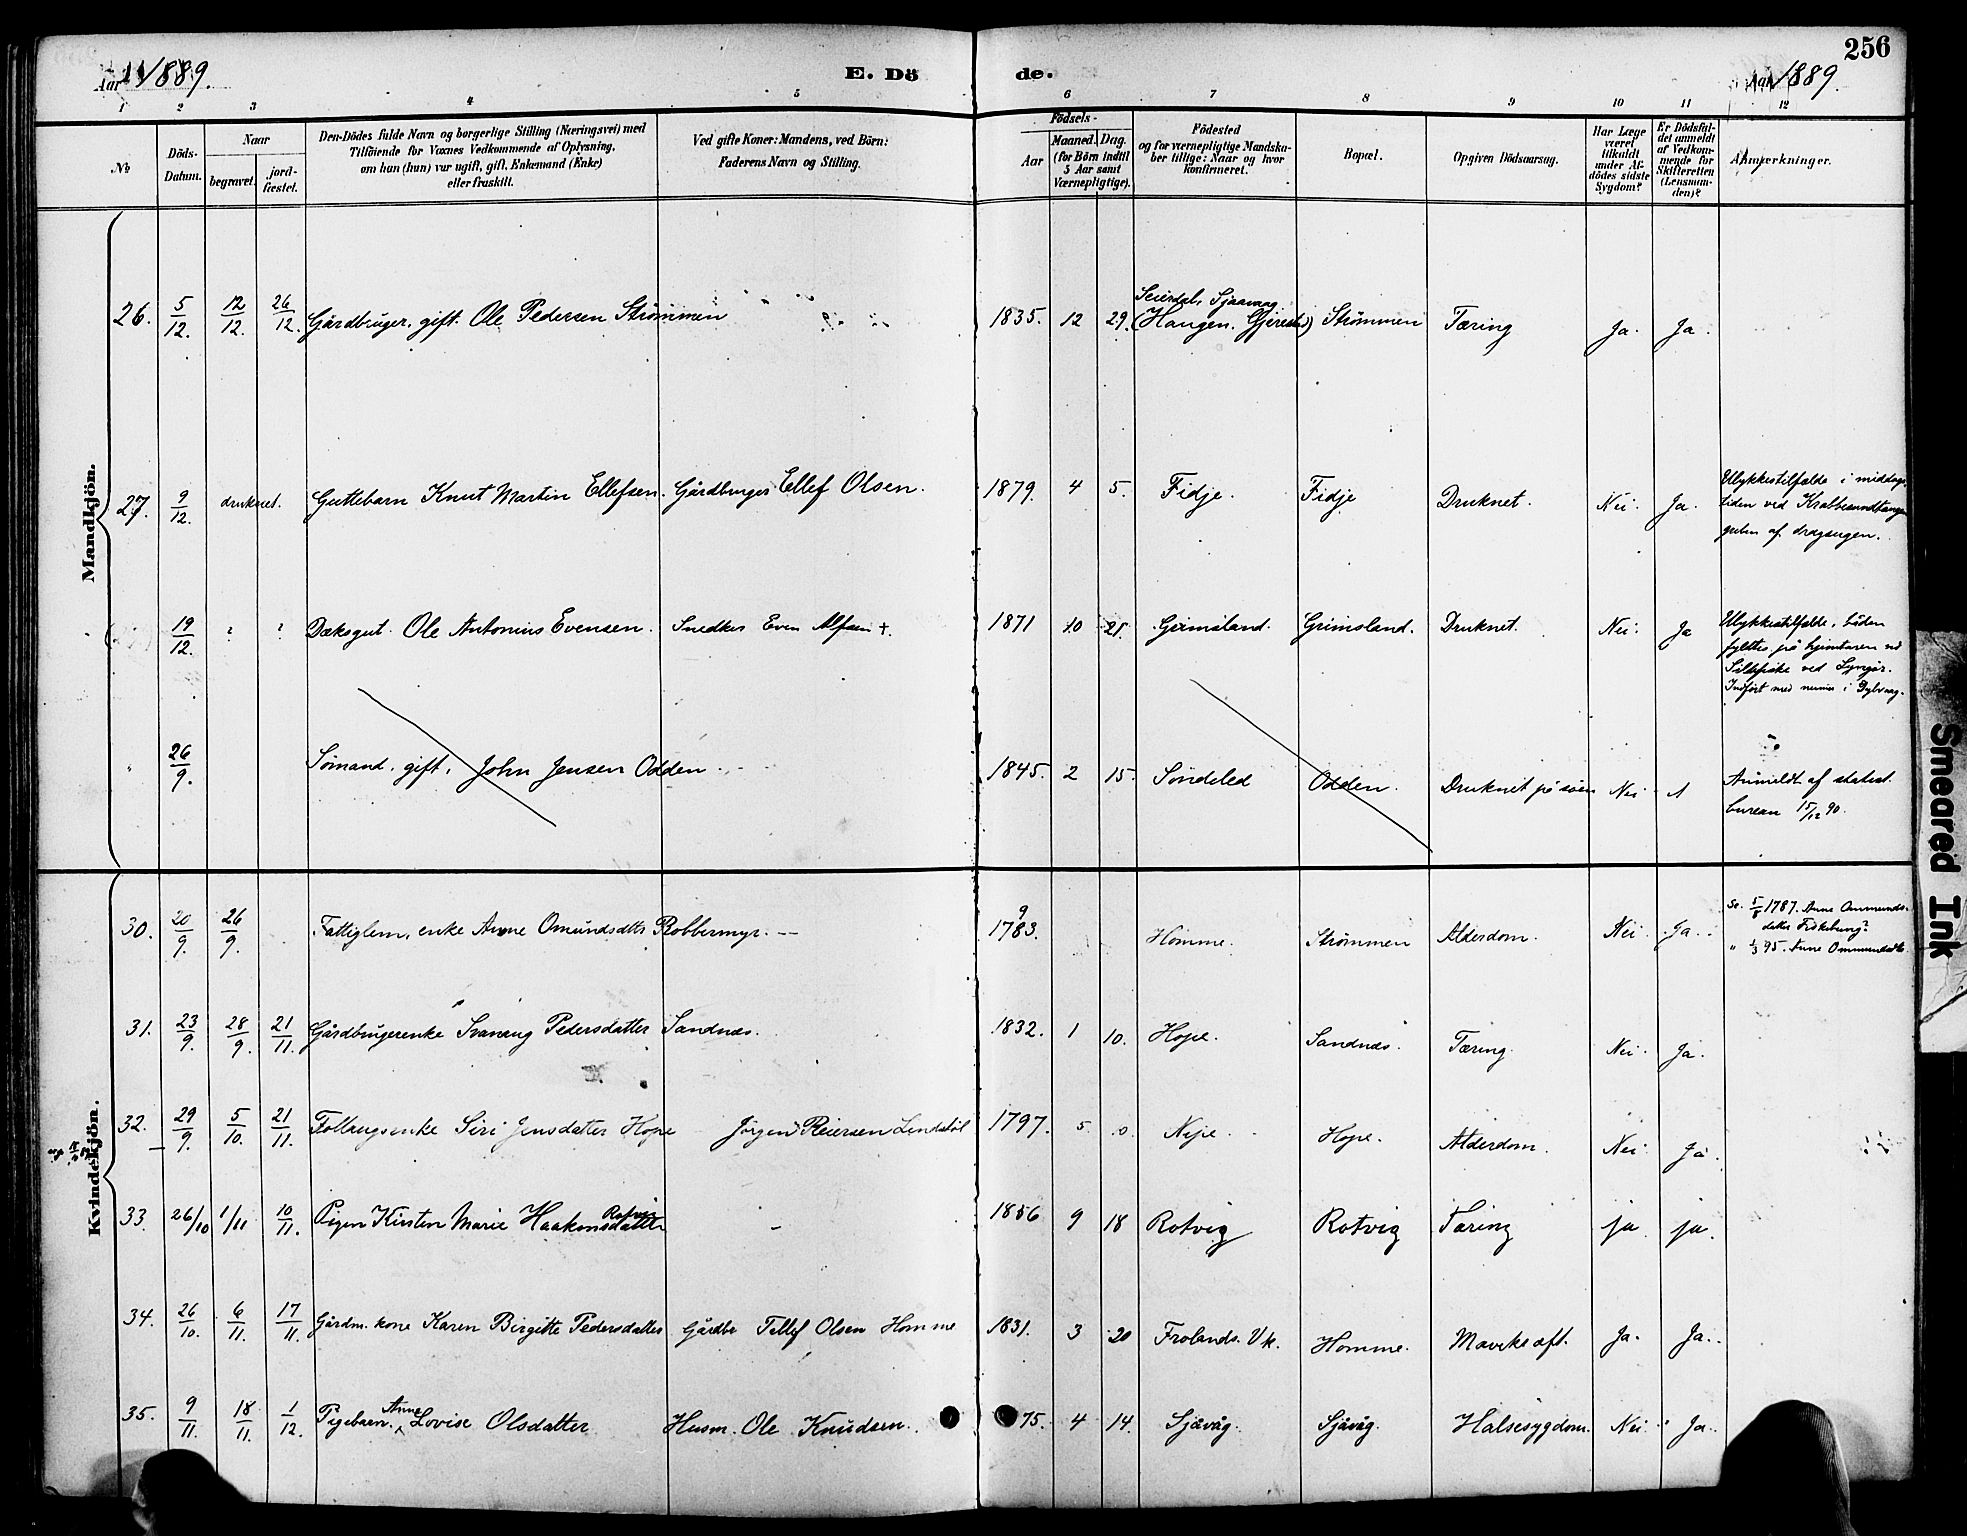 Aar 1889.
E. Dö
de.
Aar 1889
256
1 2 3 4 5 6 7 8 9 10 11 12
No
Döds-Datum.
Naar
begravet.
jord-fæstet.
Den Dödes fulde Navn og borgerlige Stilling (Næringsvei) med
Tilföiende for Voxnes Vedkommende af Oplysning,
om han (hun) var ugift, gift, Enkemand (Enke)
eller fraskilt.
Ved gifte Koner: Mandens, ved Börn:
Faderens Navn og Stilling.
Födsels-
Aar
Maaned. Dag.
(for Börn indtil
5 Aar samt
Værnepligtige).
Födested
og for værnepligtige Mandska-
ber tillige: Naar og hvor
konfirmeret.
Bopæl.
Opgiven Dödsaarsag.
Har Læge
været
tilkaldt
under Af-
dödes sidste
Sygdom?
Er Dödsfal-
det anmeldt
af Vedkom-
mende for
Skifteretten
(Lensman-
den)?
Anmærkninger.
Mandkjön.
26. 5/12. 12/12. 26/12. Gårdbruger, gift. Ole Pedersen Strömmen 1835. 12 29. (Haugen. Gjerestad) Strömmen Tæring Ja. Ja.
27. 9/12. druknet. Guttebarn Knut Martin Ellefsen. Gårdbruger Ellef Olsen. 1879. 4 5. Fidje. Fidje Druknet. Nei. Ja. Ulykkestilfælde i middags-
tiden ved
19/12. ? ? Dæksgut. Ole Antonius Evensen. Snedker Even Alfsen +. 1871 10 21. Grimsland. Grimsland. Druknet. Nei. Ja Ulykkestilfælde, båden
fyldtes på hjemturen ved
Sildefiske ved Lyngör.
Indfört med numer i Dybvaag.
" 26/9. Sömand, gift, John Jensen Odden. 1845. 2 15. Söndeled Odden. Druknet på söen Nei Anmeldt af statist.
bureau 15/12 90.
Kvindekjön.
30. 20/9. 26/9. Fattiglem, enke Anne Omundsdtr Robbermyr. 1783. 9 Homme. Strömmen Alderdom. Nei. Ja. Se. 5/8 1787. Anne Ommunds-
datter
" 1/3 95. Anne Ommundsdtr.
31. 23/9. 28/9. 21/11. Gårdbrugerenke Svanaug Pedersdatter Sandnæs. 1832. 1 10. Hope. Sandnæs. Tæring. Nei. Ja.
32. 29/9. 5/10. 21/11. Follaugsenke Siri Jensdatter Hope Jörgen Reiersen Lindstöl 1797. 5. 0. Hope. Alderdom. Nei. Ja.
33. 26/10 1/11 10/11. Pigen Kirsten Marie Haakonsdatter Rotvig 1856 9 18 Rotvig Rotvig Tæring ja ja.
34. 26/10. 6/11. 17/11. Gårdm. kone Karen Birgitte Pedersdatter Gårdbr Tellef Olsen Homme 1831. 3 20 Frolands. Vk. Homme. Mavekræft. Ja. Ja.
35. 9/11. 18/11. 1/12. Pigebarn. Anne Lovise Olsdatter Husm. Ole Knudsen. 75. 4 14. Sjåvåg. Sjåvåg. Halsesygdom. Nei. Ja.
Smeared Ink